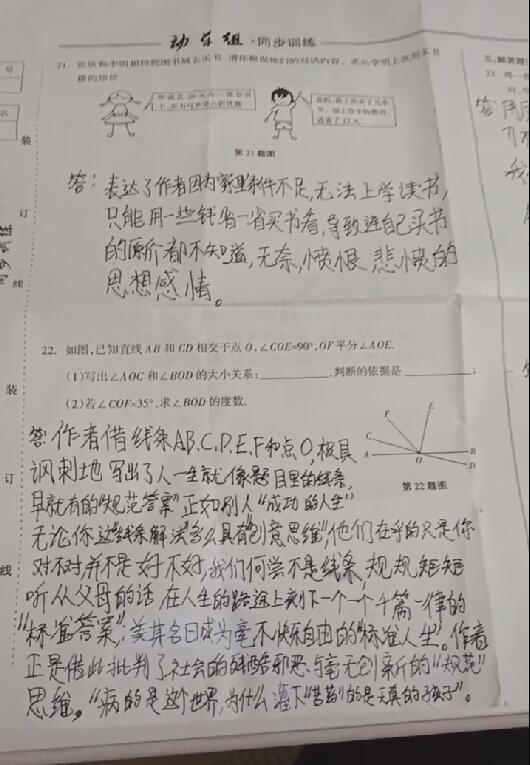 动车组·同步训练
21. 张欣和李明相约到图书城去买书,请你根据他们的对话内容,求出李明上次所买书
籍的原价.
听说花20元办一张会员
卡,买书可享受八折优惠
是的,我上次买了几本
书,加上办卡的费用
还省了12元
第21题图
答:表达了作者因为家里条件不足,无法上学读书,
只能用一些钱省一省买书看,导致连自己买书
的原价都不知道,无奈,愤恨,悲愤的
思想感情。
22. 如图,已知直线AB和CD相交于点O,∠COE=90°,OF平分∠AOE.
(1)写出∠AOC和∠BOD的大小关系:______,判断的依据是______;
(2)若∠COF=35°,求∠BOD的度数.
F E
C
A O B
D
第22题图
答:作者借线条AB,C,D,E,F和点O,极具
讽刺地写出了人一生就像题目里的线条,
早就有的"规范答案"正如别人"成功的人生"
无论你这"线条解法"多么具有"创意思维",他们在乎的只是你
对不对,并不是好不好,我们何尝不是线条,规规矩矩
听从父母的话,在人生的路途上刻下一个一个千篇一律的
"标准答案",美其名曰成为毫不快乐自由的"标准人生"。作者
正是借此批判了社会的残酷邪恶与毫无创新的"规范"
思维。"病的是这个世界,为什么灌下"苦药"的是天真的孩子"。
装
订
线
装
订
线
五、解答题
23.
答: